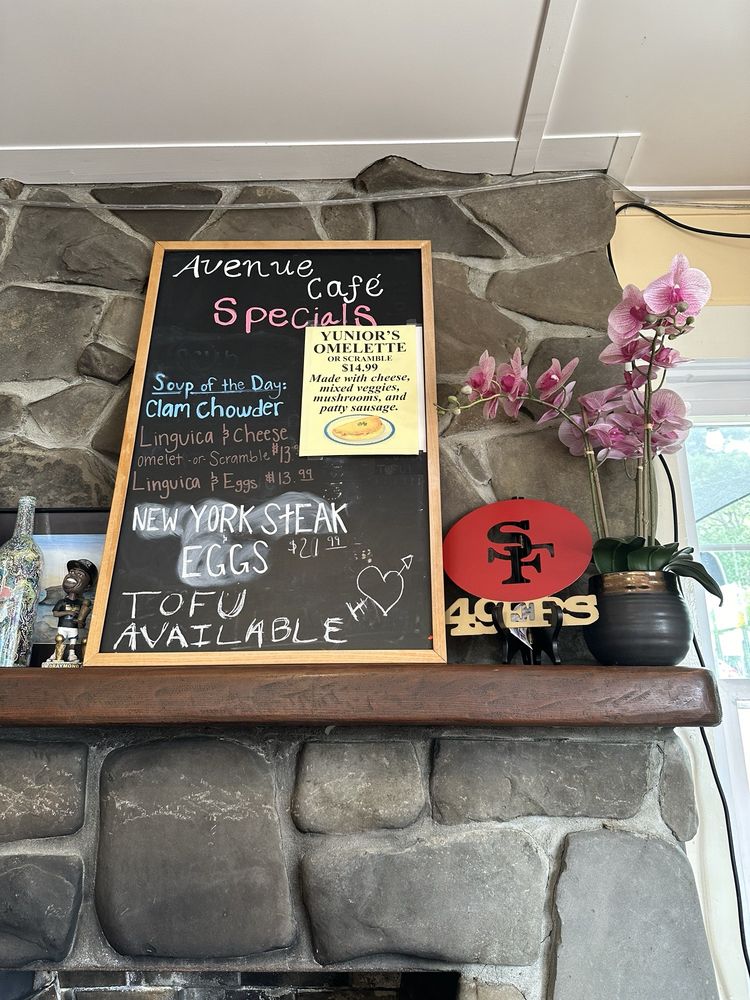 Avenue
Café
Specials
YUNIOR'S
OMELETTE
OR SCRAMBLE
$14.99
Made with cheese,
mixed veggies,
mushrooms, and
patty sausage.
Soup of the Day:
Clam Chowder
Linguica & Cheese
omelet -or- Scramble $13
Linguica & Eggs $13.99
NEW YORK STEAK
EGGS $21.99
TOFU
AVAILABLE
SF
49ERS
DRAYMOND